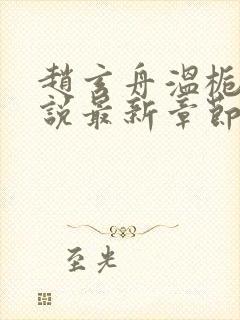 趙玄舟溫梔
説最新章節
至光